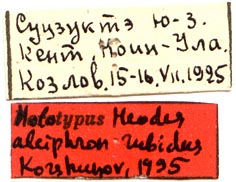 Суцзуктэ Ю-З.
Кент, Ноин-Ула.
Козлов. 15-16.VII.1925
Holotypus Heodes
alciphron rubidus
Korshunov, 1995